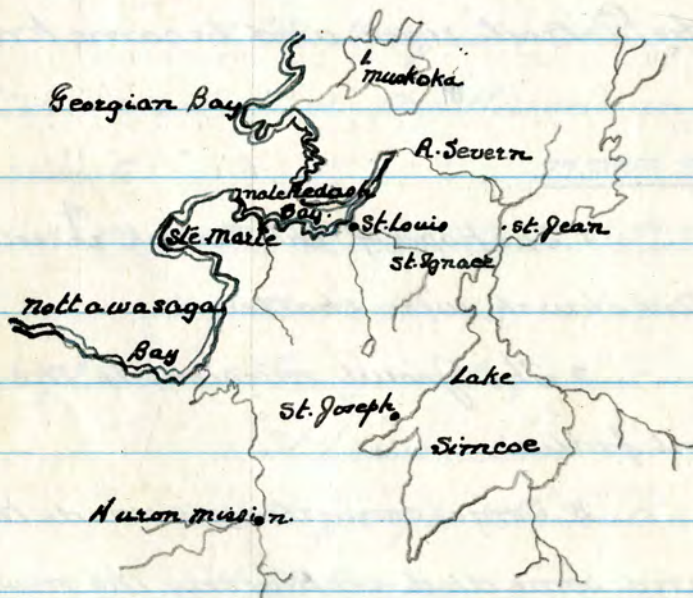 L.
Muskoka
Georgian Bay
R. Severn
Bay.
St. Louis
St. Jean
Ste. Marie
St. Ignace
Nottawasaga
Bay
Lake
St. Joseph
Simcoe
Huron Mission.